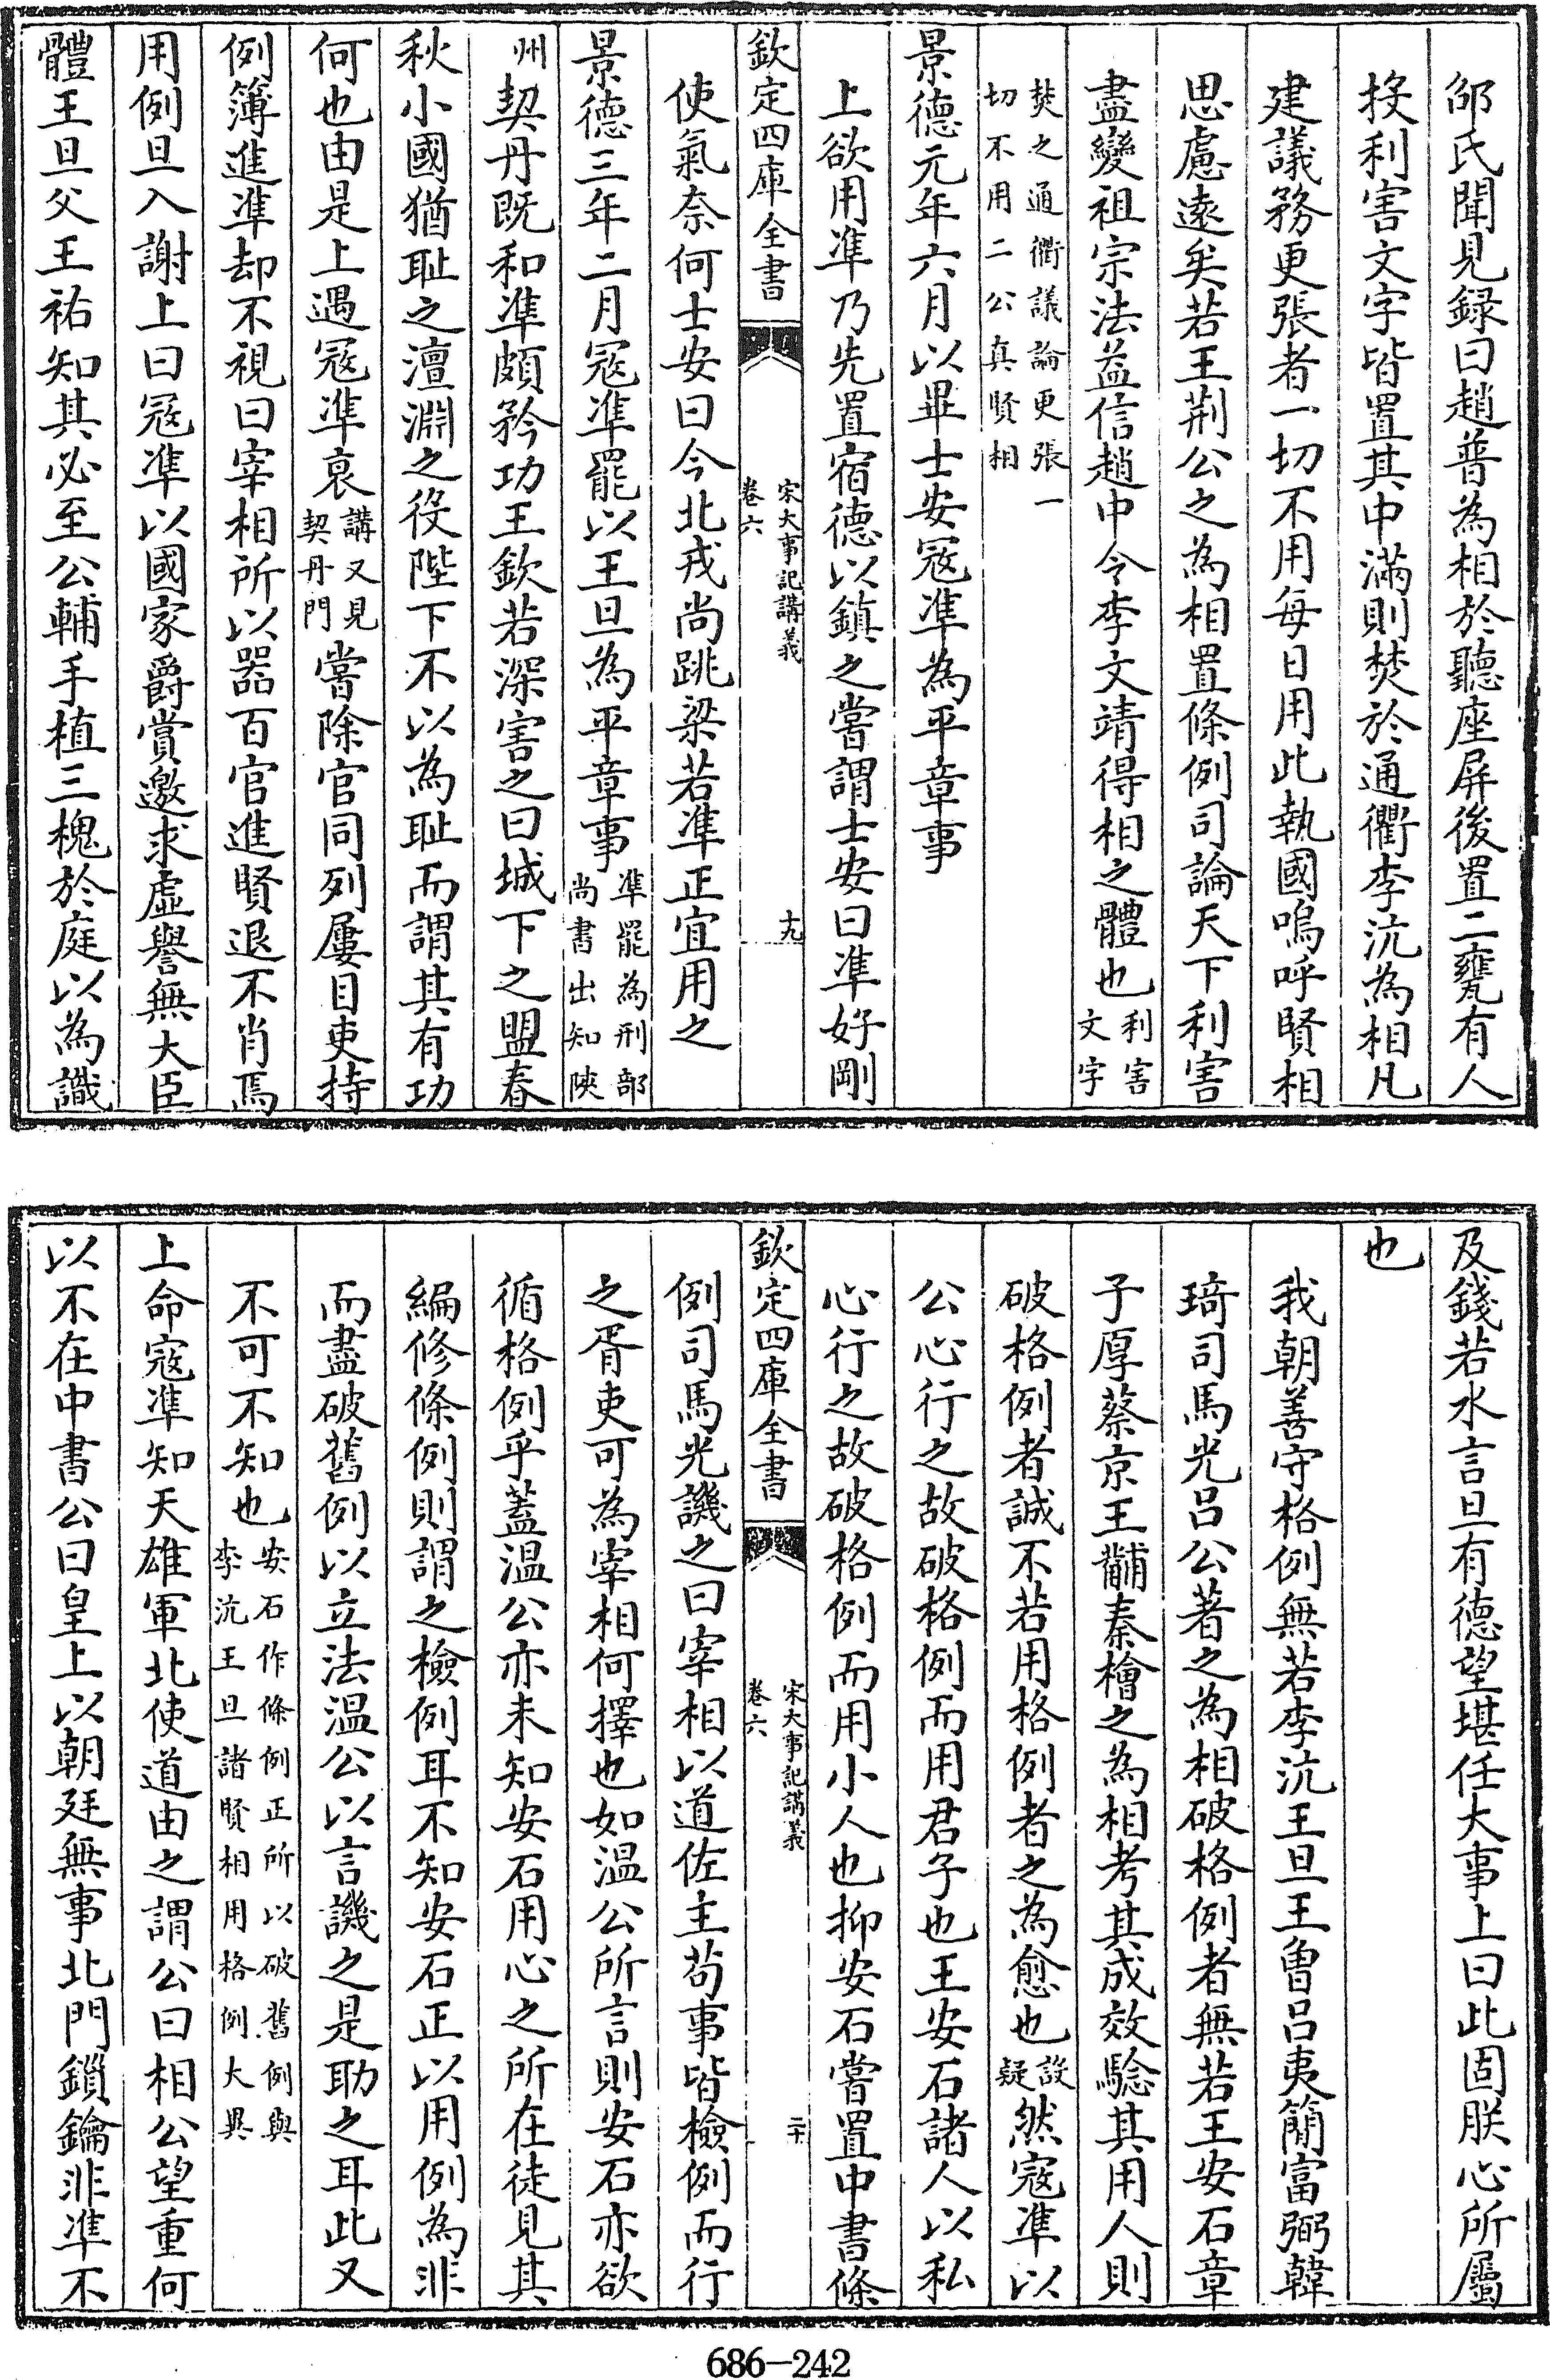 邵氏聞見録曰趙普為相於聽座屏後置二甕有人
投利害文字皆置其中滿則焚於通衢李沆為相凡
建議務更張者一切不用每日用此執國嗚呼賢相
思慮遠矣若王荆公之為相置條例司論天下利害
盡變祖宗法益信趙中令李文靖得相之體也利害
文字
焚之通衢議論更張一
切不用二公真賢相
景德元年六月以畢士安冦凖為平章事
上欲用凖乃先置宿德以鎮之嘗謂士安曰凖好剛
欽定四庫全書
宋大事記講義
卷六
十九
使氣奈何士安曰今北戎尚跳梁若凖正宜用之
景德三年二月冦凖罷以王旦為平章事凖罷為刑部
尚書出知陜
州契丹既和凖頗矜功王欽若深害之曰城下之盟春
秋小國猶耻之澶淵之役陛下不以為耻而謂其有功
何也由是上遇冦凖衰講又見
契丹門嘗除官同列屢目吏持
例簿進凖却不視曰宰相所以器百官進賢退不肖焉
用例旦入謝上曰冦凖以國家爵賞邀求虛譽無大臣
體王旦父王祐知其必至公輔手植三槐於庭以為識
及錢若水言旦有德望堪任大事上曰此固朕心所屬
也
我朝善守格例無若李沆王旦王曾吕夷簡富弼韓
琦司馬光吕公著之為相破格例者無若王安石章
子厚蔡京王黼秦檜之為相考其成效驗其用人則
破格例者誠不若用格例者之為愈也設
疑然寇凖以
公心行之故破格例而用君子也王安石諸人以私
心行之故破格例而用小人也抑安石嘗置中書條
欽定四庫全書
宋大事記講義
卷六
二十
例司馬光譏之曰宰相以道佐主苟事皆檢例而行
之胥吏可為宰相何擇也如温公所言則安石亦欲
循格例乎蓋温公亦未知安石用心之所在徒見其
編修條例則謂之檢例耳不知安石正以用例為非
而盡破舊例以立法温公以言譏之是助之耳此又
不可不知也安石作條例正所以破舊例與
李沆王旦諸賢相用格例大異
上命寇凖知天雄軍北使道由之謂公曰相公望重何
以不在中書公曰皇上以朝廷無事北門鎖鑰非凖不
686-242